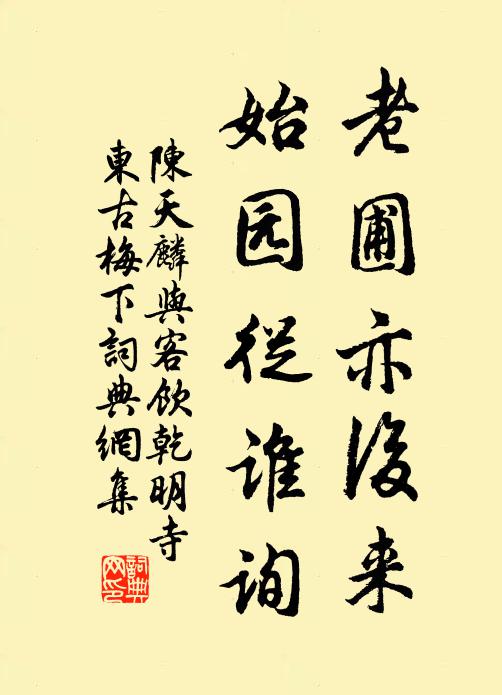 老圃亦後来
始园從谁询
陳天麟與客飲乾明寺
東古梅下詞典網集
詞典网印